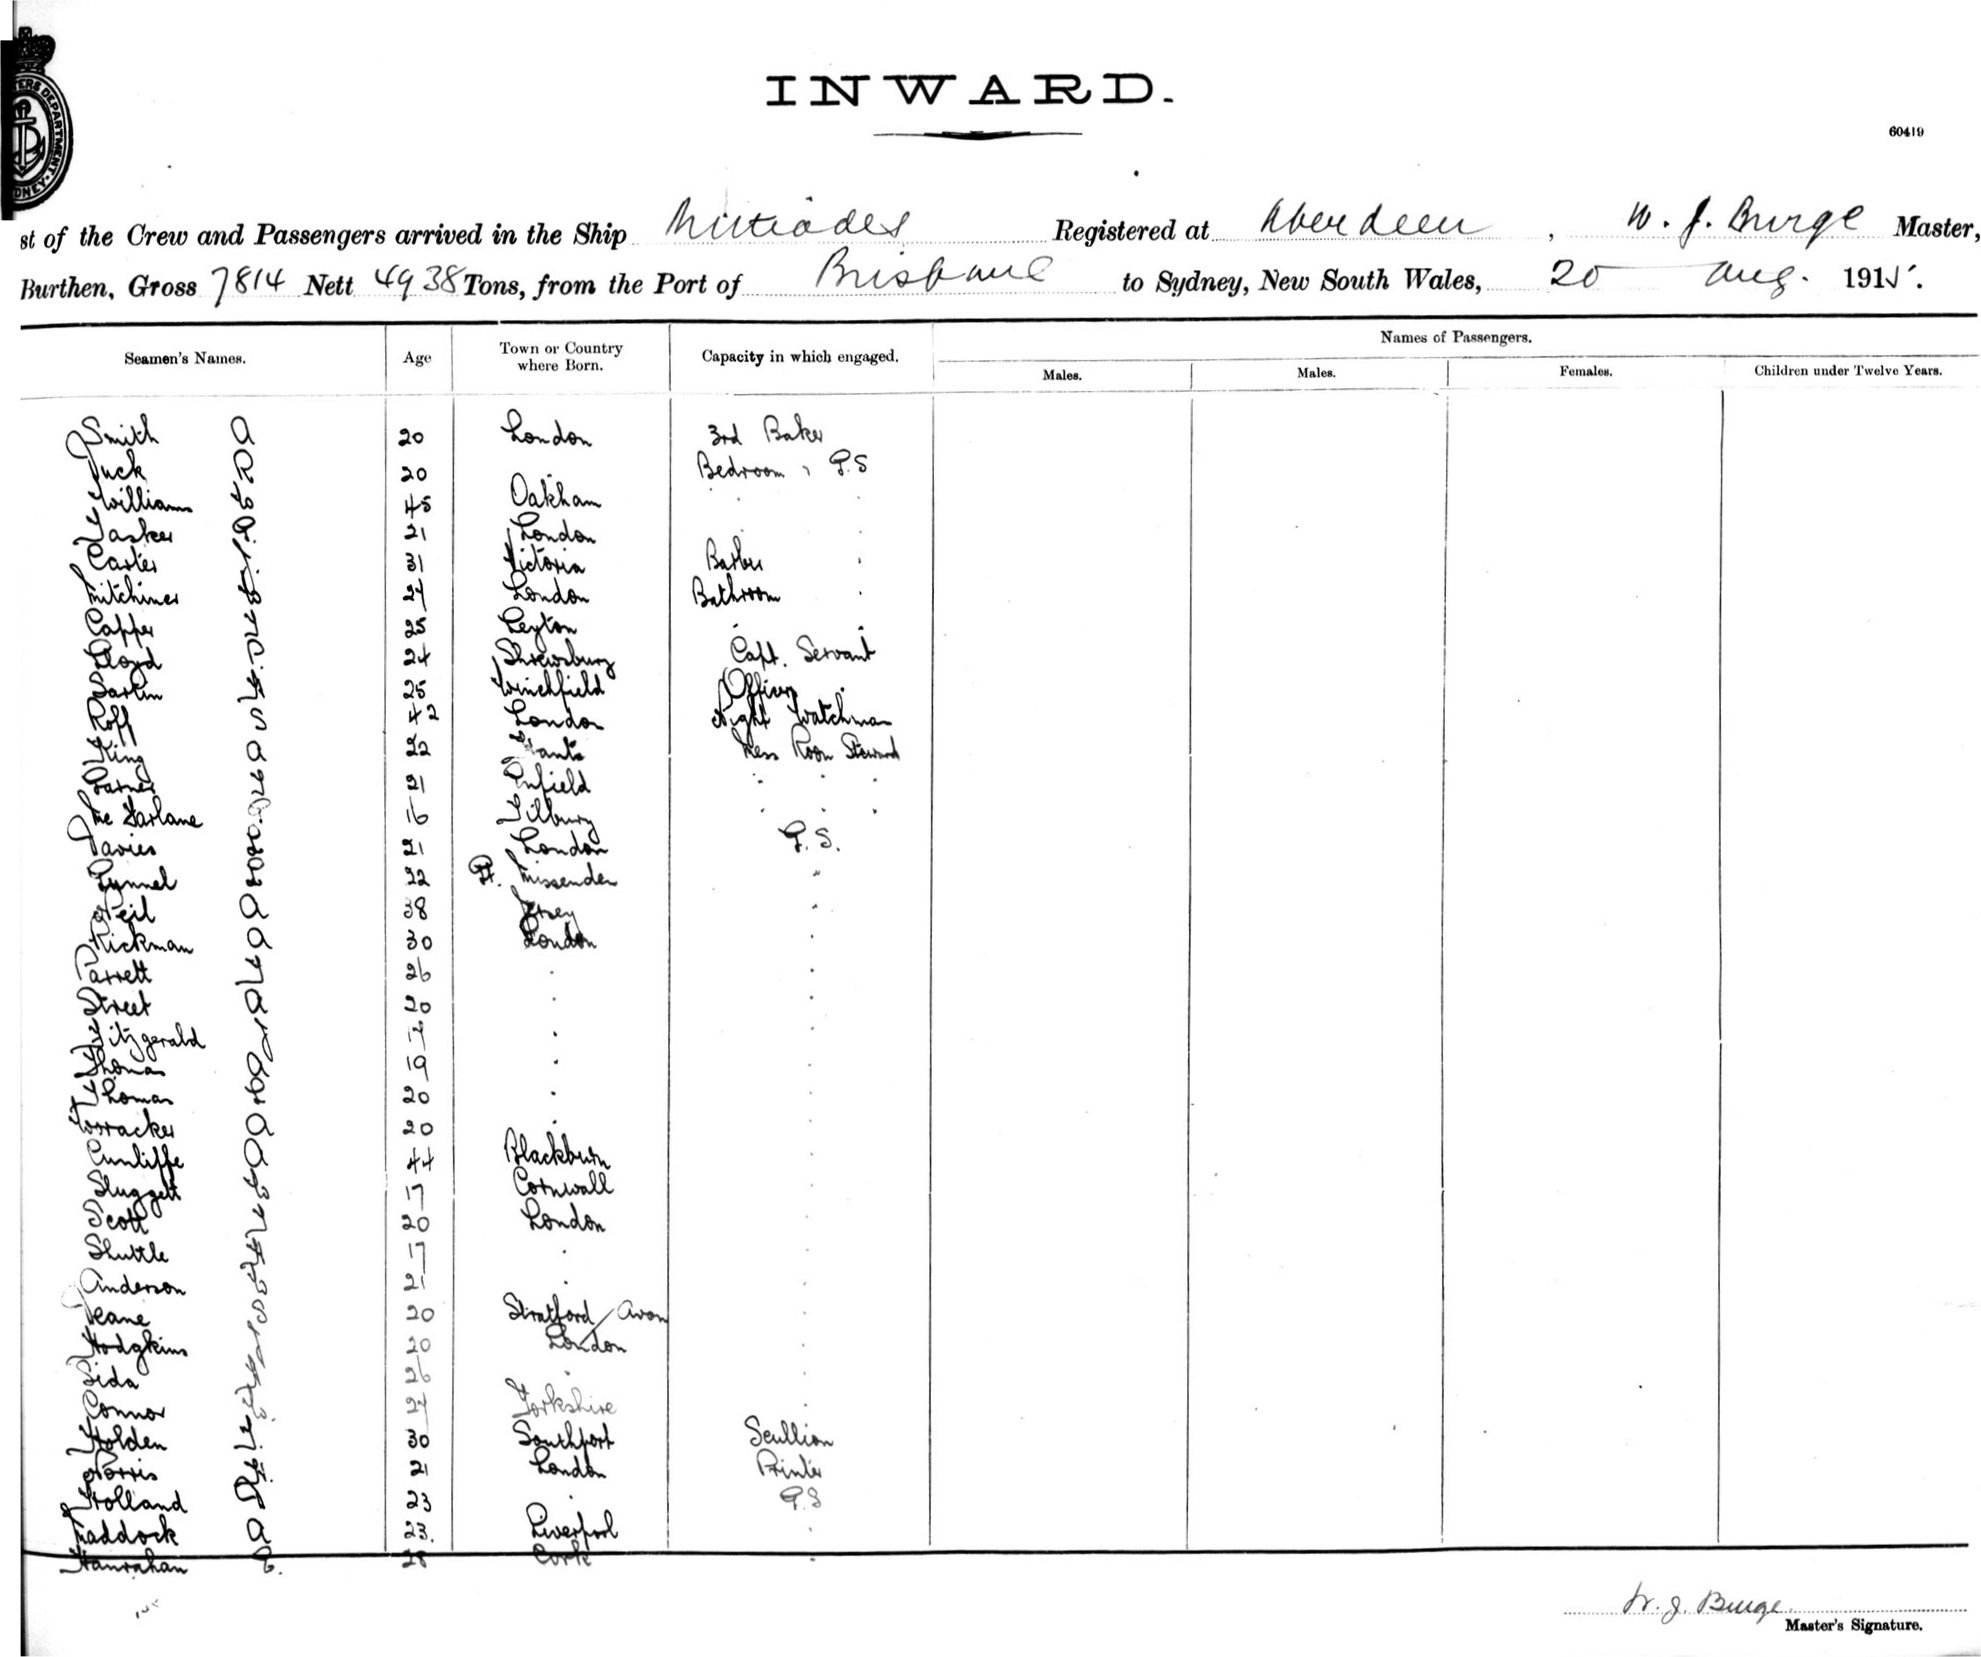 INWARD.
60419
st of the Crew and Passengers arrived in the Ship Miltiades Registered at Aberdeen, W. J. Burge Master,
Burthen, Gross 7814 Nett 4938 Tons, from the Port of Brisbane to Sydney, New South Wales, 20 Aug. 1915.
Seamen's Names. Age Town or Country where Born. Capacity in which engaged. Names of Passengers.
Males. Males. Females. Children under Twelve Years.
Smith 20 London 3rd Baker
Tuck 20 " Bedroom " G.S
Williams 45 Oakham " "
Tasker 21 London "
Carter 31 Victoria Barber "
Mitchiner 27 London Bathroom "
Capper 25 Leyton " "
Lloyd 24 Shrewsbury Capt. Servant
Sartin 25 Winchfield Officers "
Roff 42 London Night Watchman
King 22 Hants Mess Room Steward
Garner 21 Enfield " " "
McFarlane 16 Tilbury " " "
Davies 21 London G.S.
Lunnel 22 Gt. Missenden "
Neil 38 Jersey "
Rickman 30 London "
Parrett 26 " "
Street 20 " "
Fitzgerald 17 " "
Thomas 19 " "
Thomas 20 " "
20 " "
Cunliffe 44 Blackburn "
Sluggett 17 Cornwall "
Scott 20 London "
Shuttle 17 " "
Anderson 21 " "
Deane 20 Stratford / Avon "
Hodgkins 20 London "
26 " "
Connor 27 Yorkshire "
Holden 30 Southport Scullion
Norris 21 London Printer
Holland 23 " G.S
Maddock 23. Liverpool "
Hanrahan 28 Cork "
W. J. Burge
Master's Signature.